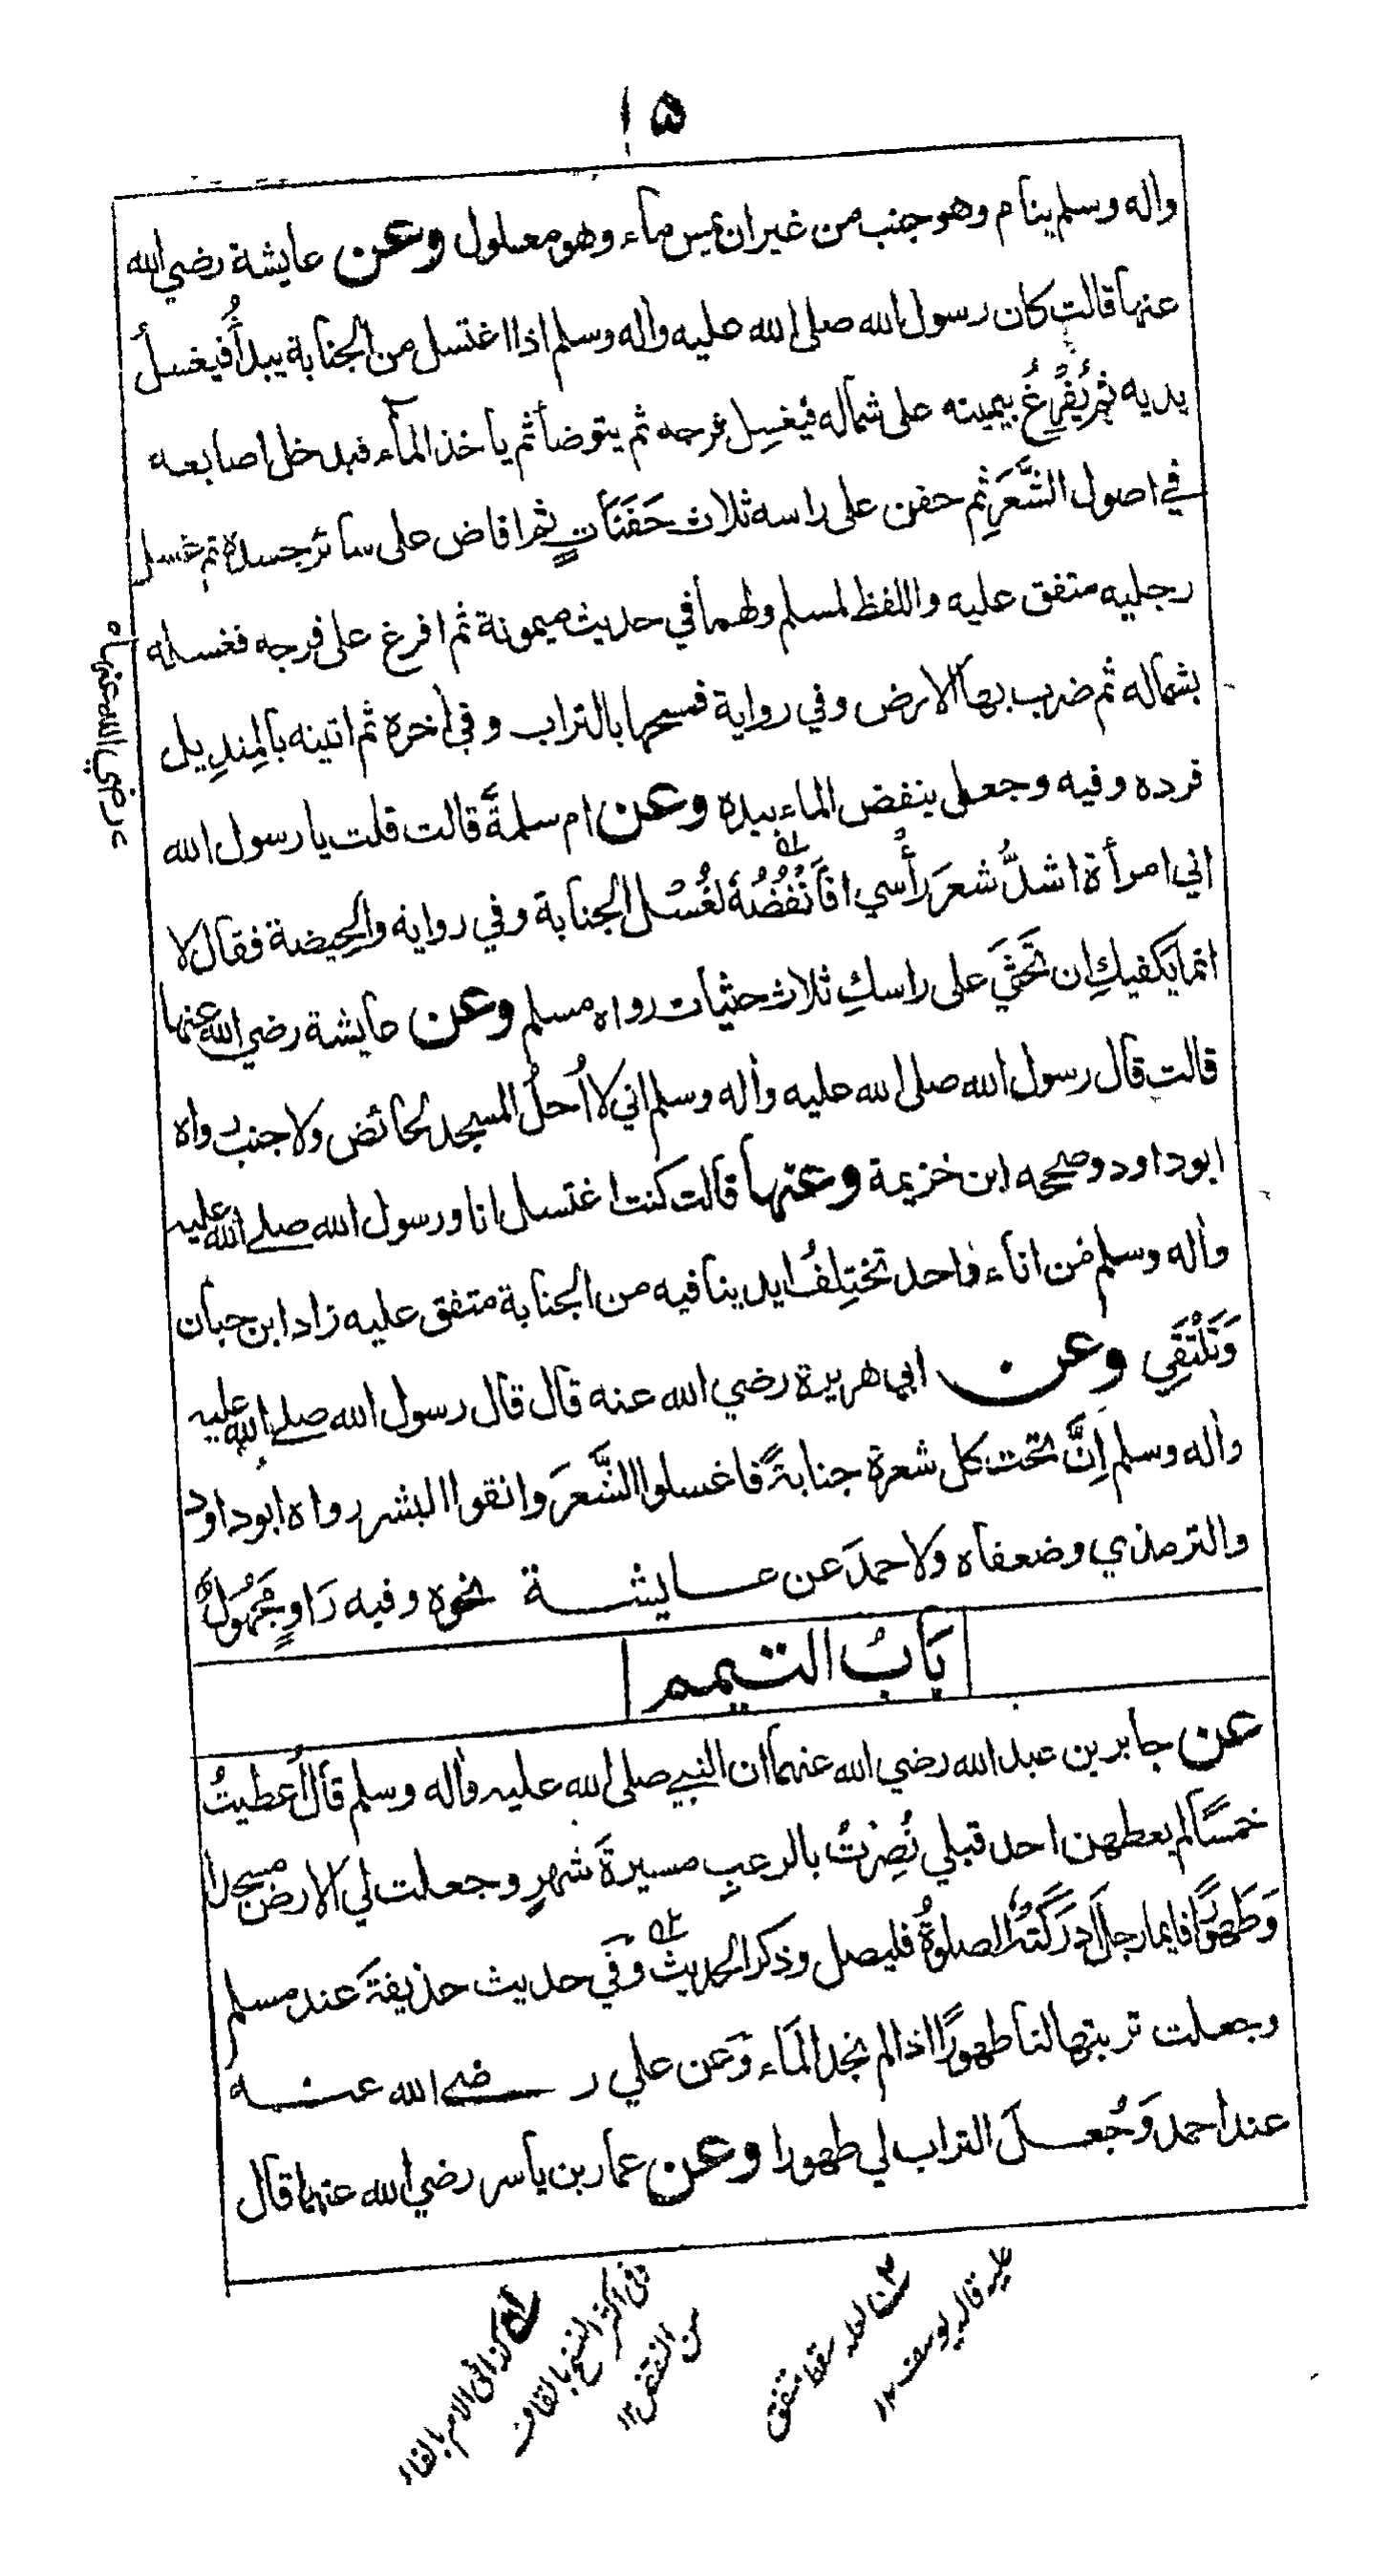 ١٥
واله وسلم ينام وهو جنب من غير ان يمس ماء وهو معلول وعن عايشة رضي الله
عنها قالت كان رسول الله صلى الله عليه واله وسلم اذا اغتسل من الجنابة يبدأ فيغسل
يديه ثم يُفرِغُ بيمينه على شماله فيغسِل فرجه ثم يتوضأ ثم ياخذ المآء فيدخل اصابعه
في اصول الشَّعَرِ ثم حفن على راسه ثلاث حَفَنَاتٍ ثم افاض على سائر جسده ثم غسل
رجليه متفق عليه واللفظ لمسلم ولهما في حديث ميمونة ثم افرغ على فرجه فغسله
بشماله ثم ضرب بها الارض وفي رواية فمسحها بالتراب وفي اخره ثم اتيته بالمِنديل
فرده وفيه وجعل ينفض الماء بيده وعن ام سلمةَ قالت قلت يا رسول الله
رضي الله عنها ه
اني امرأة اشدُّ شعرَ رأسي افَأنْفُضُهُ لغُسْل الجنابة وفي رواية والحيضة فقال لا
انما يَكفيكِ ان تَحثَي على راسكِ ثلاث حثيات رواه مسلم وعن عايشة رضي الله عنها
قالت قال رسول الله صلى الله عليه واله وسلم اني لا اُحلُ المسجد لحائض ولا جنب رواه
ابوداود وصححه ابن خزيمة وعنها قالت كنت اغتسل انا ورسول الله صلے الله عليه
واله وسلم من اناء واحد تختِلفُ ايدينا فيه من الجنابة متفق عليه زاد ابن حبان
وَتَلْتَقِي وعن ابي هريرة رضي الله عنه قال قال رسول الله صلے الله عليه
واله وسلم اِنَّ تحت كل شعرة جنابةً فاغسلوا الشَّعرَ وانقوا البشر رواه ابوداود
والترمذي وضعفاه ولاحمدَ عن عايشة نحوه وفيه رَاوٍ مجَهُولٌ
بَابُ التيمم
عن جابر بن عبد الله رضي الله عنهما ان النبي صلى الله عليه واله وسلم قال اُعطيتُ
خمسًا لم يعطهن احد قبلي نُصِرتُ بالرعبِ مسيرةَ شهرٍ وجعلت لي الارض مسجدا
وَطَهورًا فايما رجل اَدرَكَتهُ الصلوةُ فليصل وذكر الحديث وَفي حديث حذيفةَ عند مسلم
وجعلت تربتها لنا طهورًا اذا لم نجد المَاء وَعن علي رضے الله عنه
عند احمد وَجُعلَ التراب لي طهورا وعن عمار بن ياسر رضي الله عنهما قال
كذا في الام بالفاء
وفي اكثر النسخ بالقاف
من النقض ١٢
لعله سقط متفق
عليه قاله يوسف ١٢